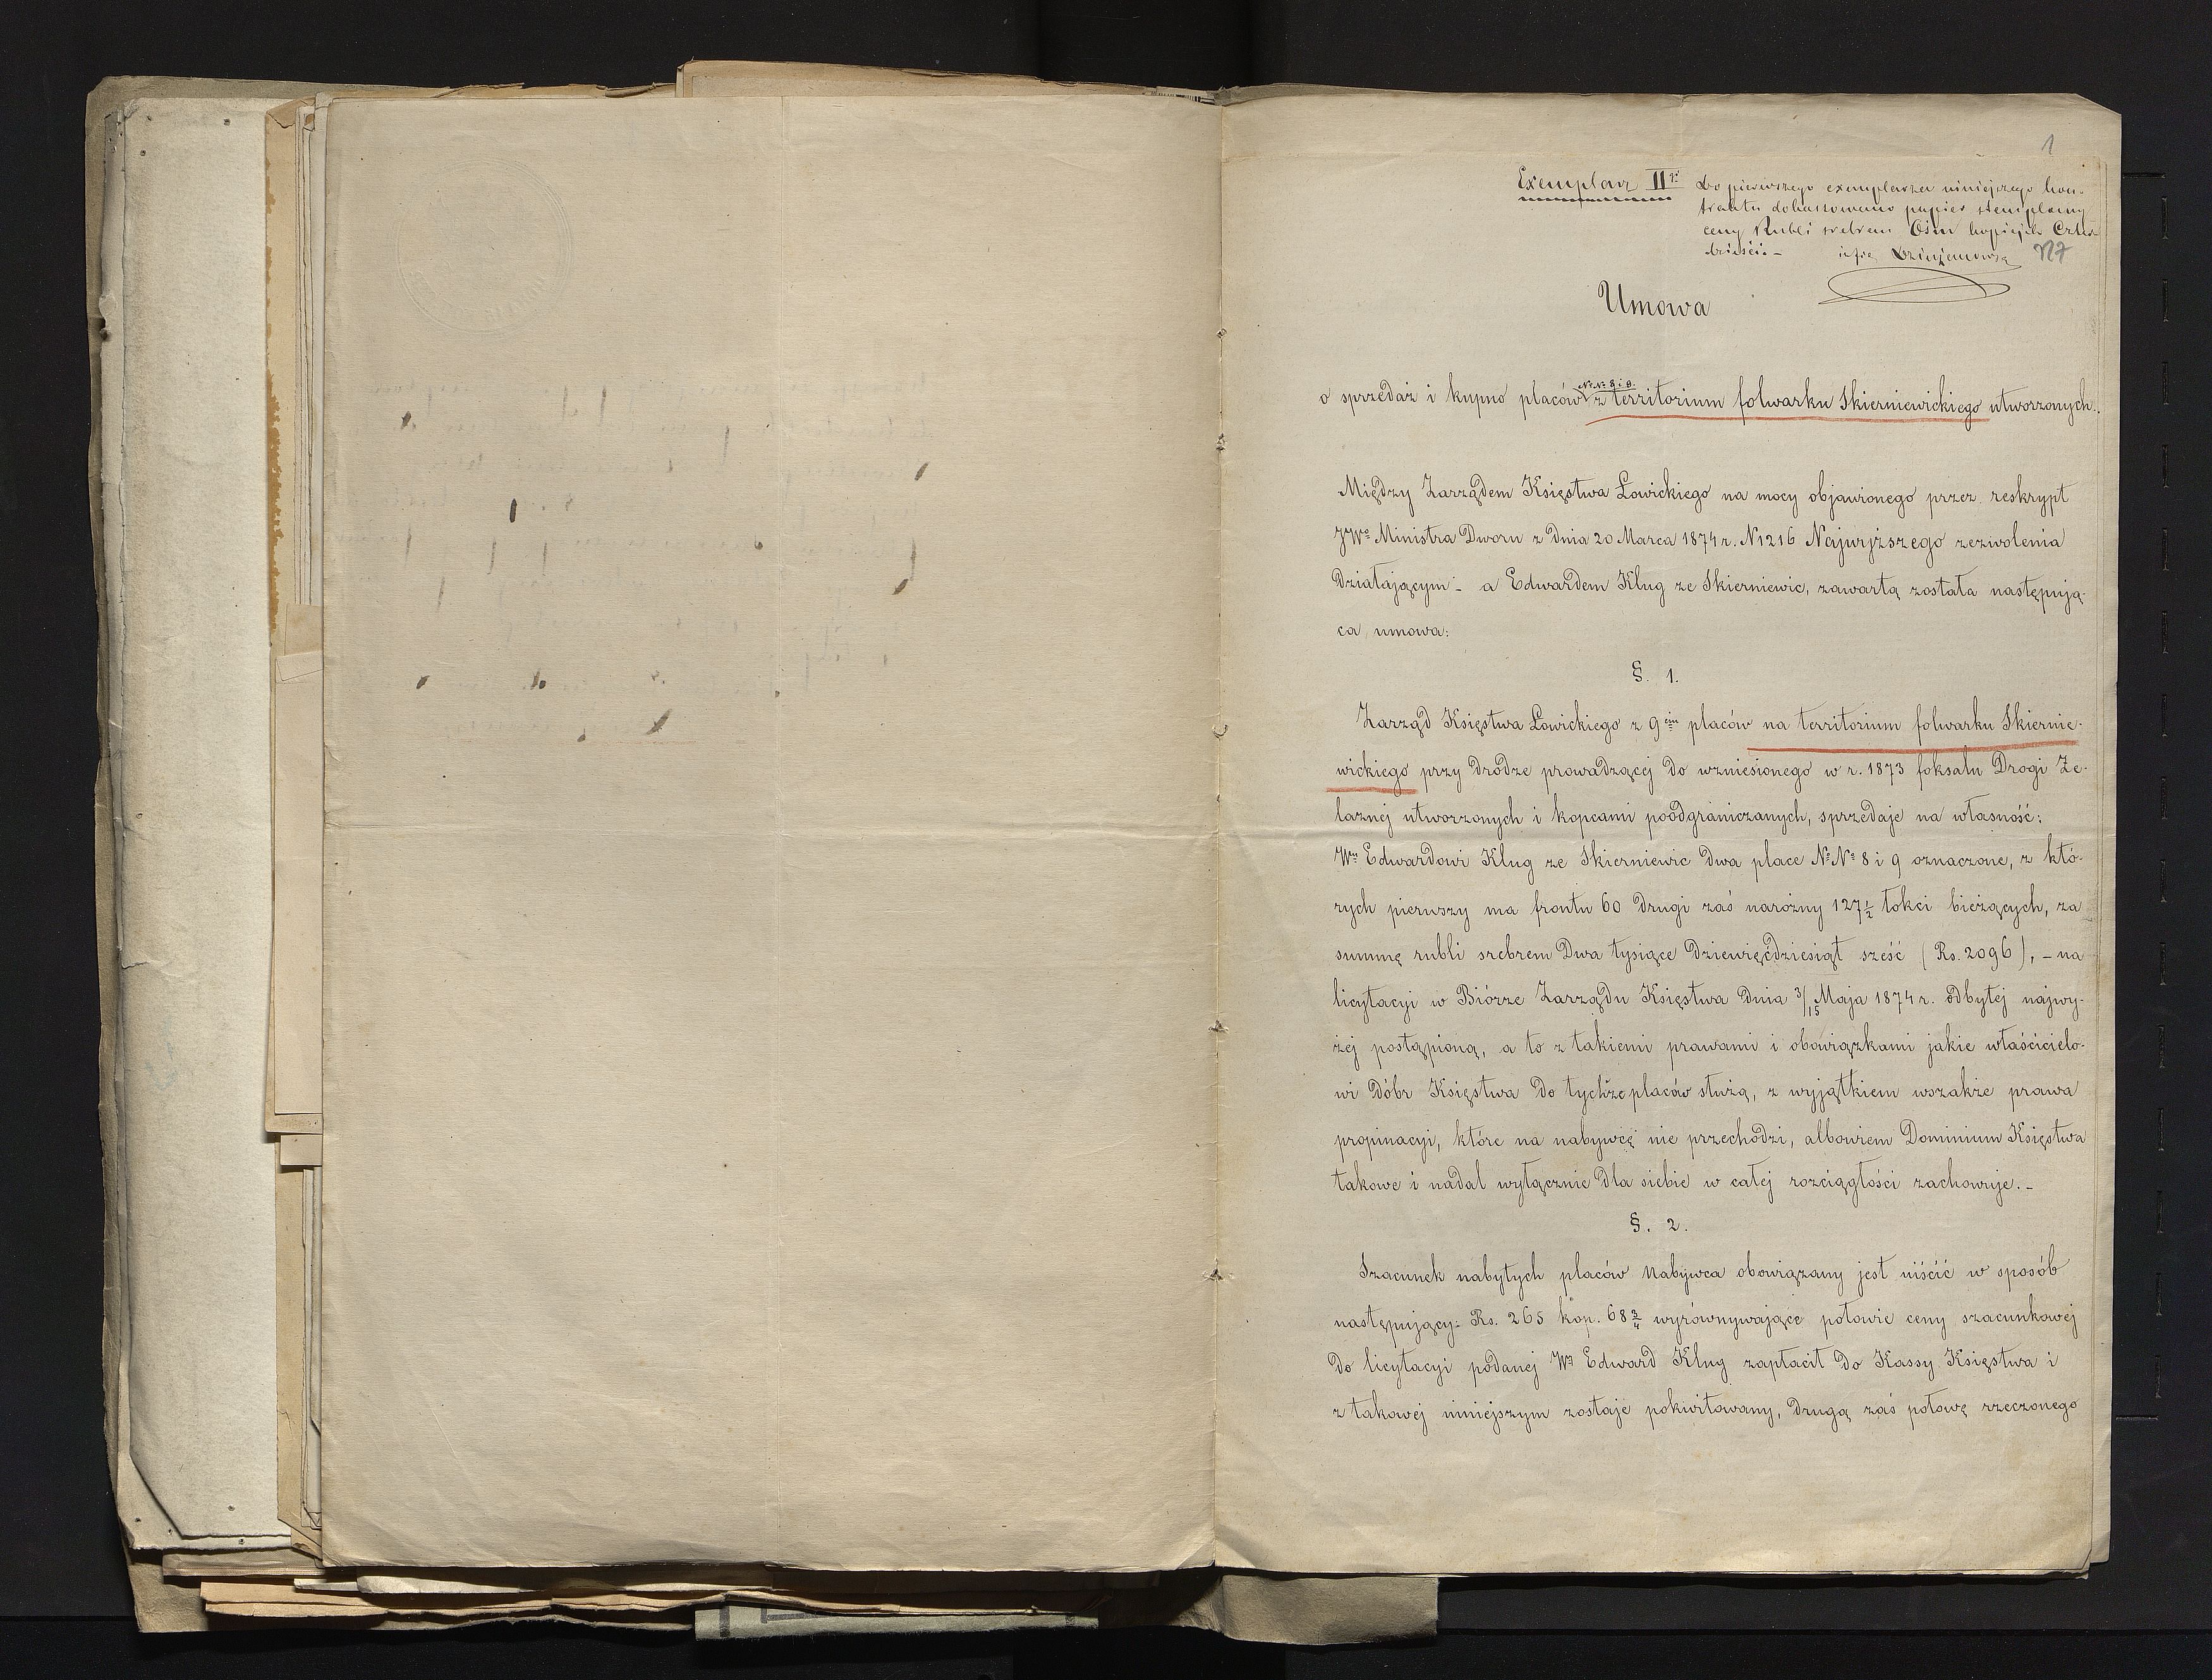 1
Exemplarz IIgi
Do pierwszego exemplarza niniejszego kon-
traktu dokassowano papier stemplowy
ceny Rubli srebrem Ośm kopiejek Czter-
dzieści. –
№7
Umowa
№ № 8 i 9.
o sprzedaż i kupno placów z territorium folwarku Skierniewickiego utworzonych.
Między Zarządem Księstwa Łowickiego na mocy objawionego przez reskrypt
JWo Ministra Dworu z dnia 20 Marca 1874 r. N1216 Najwyższego zezwolenia
działającym – a Edwardem Klug ze Skierniewic, zawartą została następują-
ca umowa:
§. 1.
Zarząd Księstwa Łowickiego z 9ciu placów na territorium folwarku Skiernie-
wickiego przy drodze prowadzącej do wzniesionego w r. 1873 foksalu Drogi Że-
laznej utworzonych i kopcami poodgraniczanych, sprzedaje na własność:
Wmu Edwardowi Klug ze Skierniewic dwa place № № 8 i 9 oznaczone, z któ-
rych pierwszy ma frontu 60 drugi zaś narożny 127½ łokci bieżących, za
summę rubli srebrem Dwa tysiące dziewięćdziesiąt sześć (Rs. 2096), – na
licytacyi w Biórze Zarządu Księstwa dnia 3/15 Maja 1874 r. odbytej najwy-
żej postąpioną, a to z takiemi prawami i obowiązkami jakie właścicielo-
wi dóbr Księstwa do tychże placów służą, z wyjątkiem wszakże prawa
propinacyi, które na nabywcę nie przechodzi, albowiem Dominium Księstwa
takowe i nadal wyłącznie dla siebie w całej rozciągłości zachowuje. –
§. 2.
Szacunek nabytych placów Nabywca obowiązany jest uiścić w sposób
następujący: Rs. 265 kop. 68¾ wyrównywające połowie ceny szacunkowej
do licytacyi podanej Wny Edward Klug zapłacił do Kassy Księstwa i
z takowej niniejszym zostaje pokwitowany, drugą zaś połowę rzeczonego